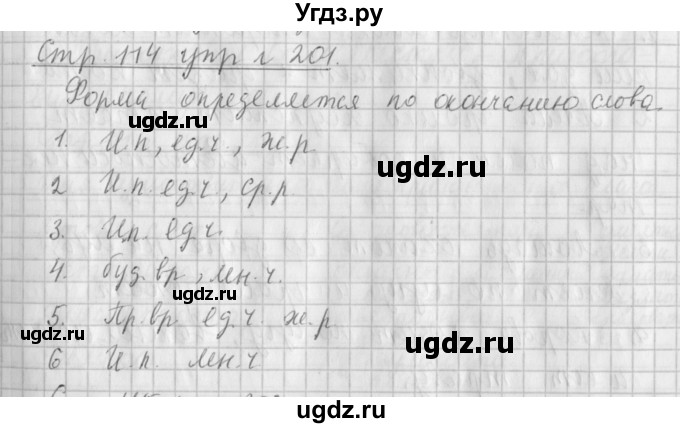 Угдз.ру
Стр. 114 упр г 201.
Форма определяется по окончанию слова.
ugdz.ru
ugdz.ru
1. И.п, ед.ч., ж.р.
2 И.п. ед.ч., ср.р
3. Ип. ед.ч.
4. буд. вр, мн.ч.
ugdz.ru
5. Пр.вр ед.ч. ж.р
ugdz.ru
6 И.п. мн.ч
ugdz.ru